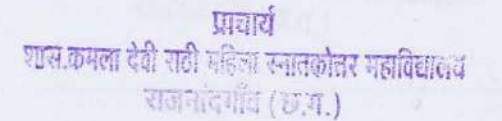 प्राचार्य
शास.कमला देवी राठी महिला स्नातकोत्तर महाविद्यालय
राजनांदगाँव (छ.ग.)